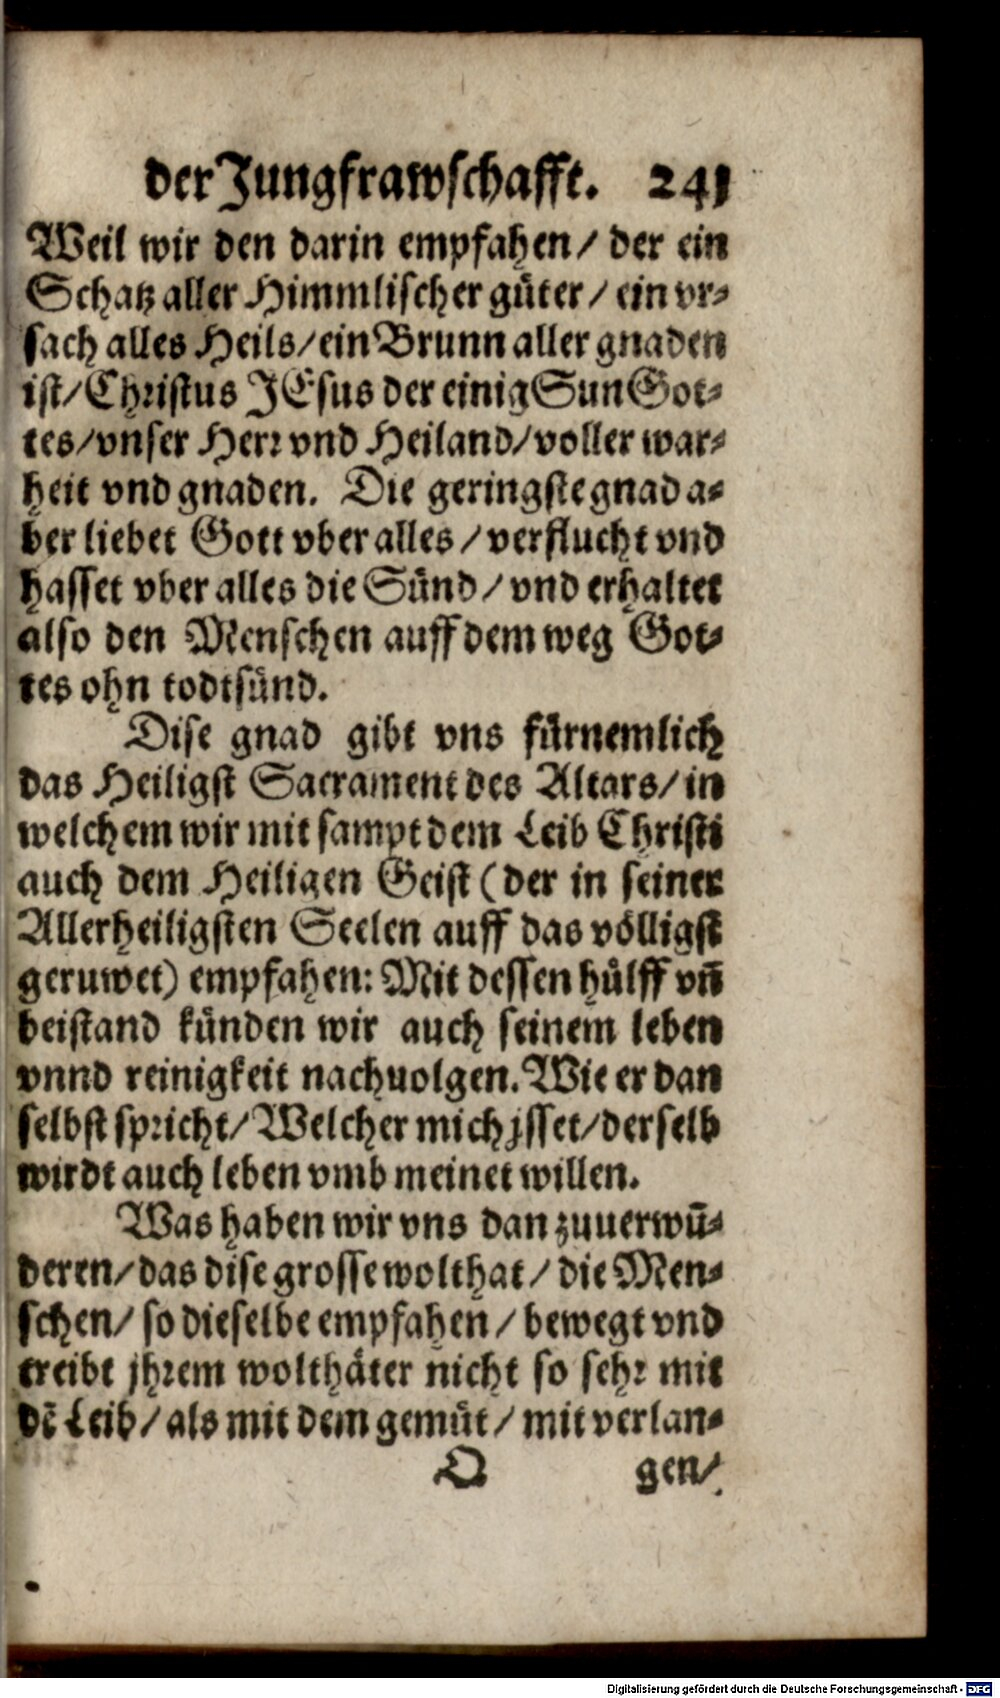 der Jungfrawschafft. 241
Weil wir den darin empfahen/ der ein
Schatz aller Himmlischer güter/ ein vr⸗
sach alles Heils/ ein Brunn aller gnaden
ist/ Christus JEsus der einig Sun Got⸗
tes/ vnser Herr vnd Heiland/ voller war⸗
heit vnd gnaden. Die geringste gnad a⸗
ber liebet Gott vber alles/ verflucht vnd
hasset vber alles die Sünd/ vnd erhaltet
also den Menschen auff dem weg Got⸗
tes ohn todtsünd.
Dise gnad gibt vns fürnemlich
das Heiligst Sacrament des Altars/ in
welchem wir mit sampt dem Leib Christi
auch dem Heiligen Geist (der in seiner
Allerheiligsten Seelen auff das völligst
geruwet) empfahen: Mit dessen hülff vn̄
beistand künden wir auch seinem leben
vnnd reinigkeit nachuolgen. Wie er dan
selbst spricht/ Welcher mich jsset/ derselb
wirdt auch leben vmb meinet willen.
Was haben wir vns dan zuuerwū⸗
deren/ das dise grosse wolthat/ die Men⸗
schen/ so dieselbe empfahen/ bewegt vnd
treibt jhrem wolthäter nicht so sehr mit
dē Leib/ als mit dem gemüt/ mit verlan⸗
Q gen/
Digitalisierung gefördert durch die Deutsche Forschungsgemeinschaft - DFG